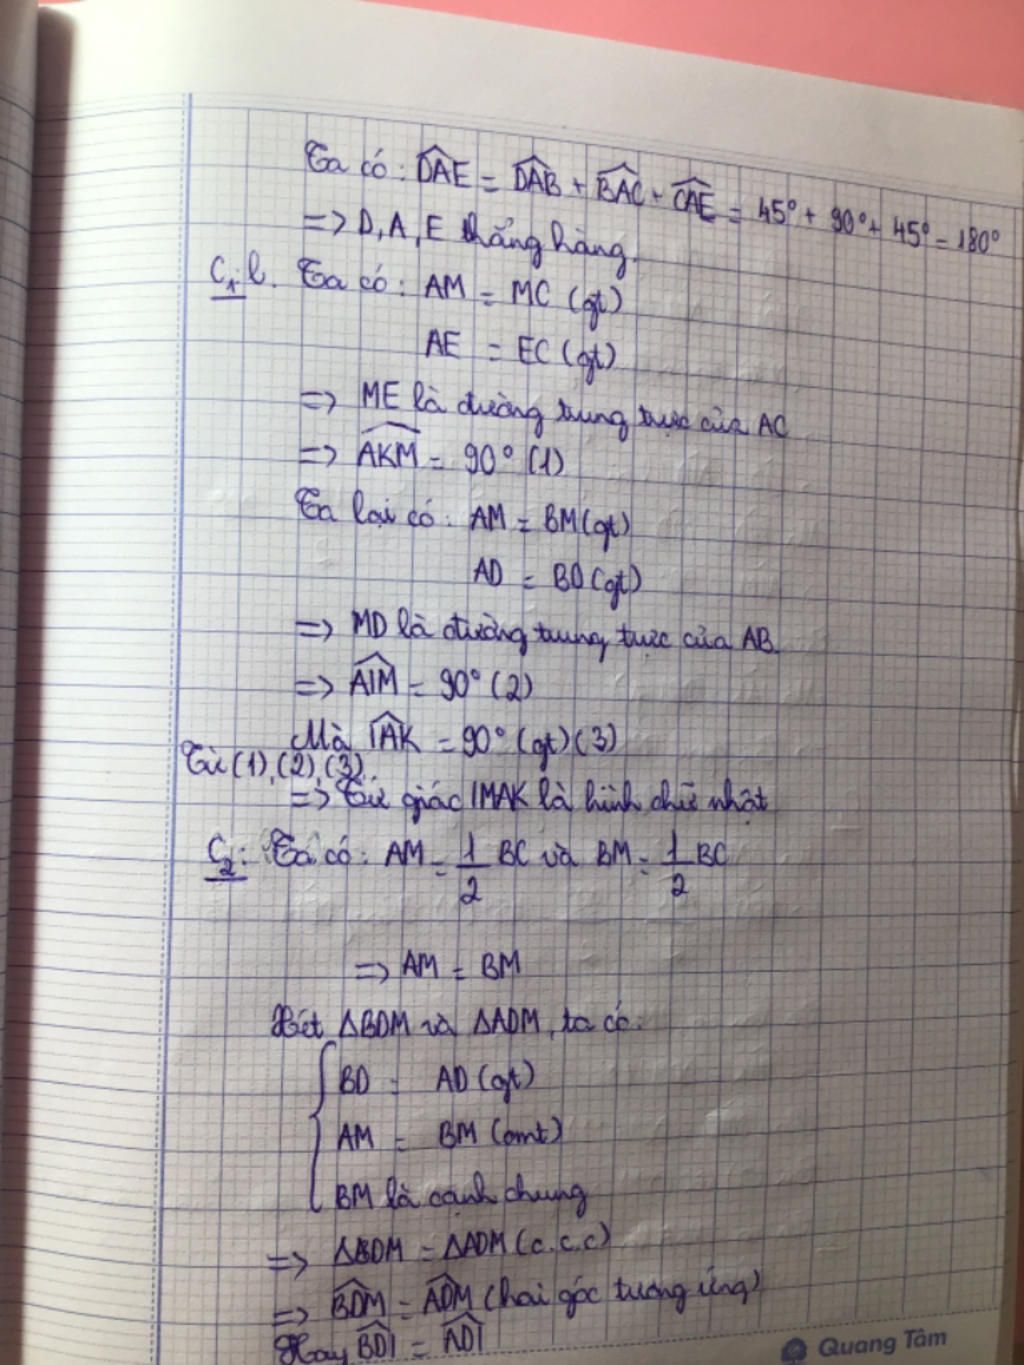 Ta có: DAE = DAB + BAC + CAE = 45° + 90° + 45° = 180°
=> D, A, E thẳng hàng.
C1: b. Ta có: AM = MC (gt)
AE = EC (gt)
=> ME là đường trung trực của AC
=> AKM = 90° (1)
Ta lại có: AM = BM (gt)
AD = BD (gt)
=> MD là đường trung trực của AB.
=> AIM = 90° (2)
Mà IAK = 90° (gt) (3)
Từ (1), (2), (3).
=> Tứ giác IMAK là hình chữ nhật
C2: Ta có: AM = 1/2 BC và BM = 1/2 BC
=> AM = BM
Xét ΔBDM và ΔADM, ta có:
BD = AD (gt)
AM = BM (cmt)
BM là cạnh chung
=> ΔBDM = ΔADM (c.c.c)
=> BDM = ADM (hai góc tương ứng)
Hay BDI = ADI
Quang Tâm